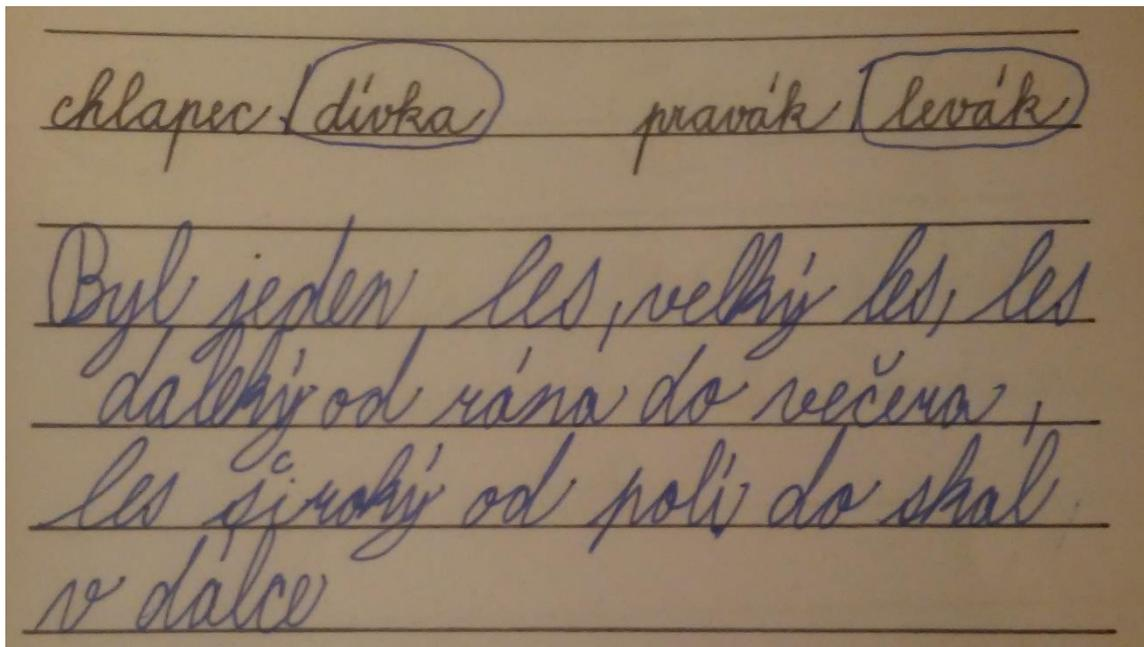 chlapec / dívka pravák / levák
Byl jeden les, velký les, les
daleký od rána do večera,
les široký od polí do skal
v dálce